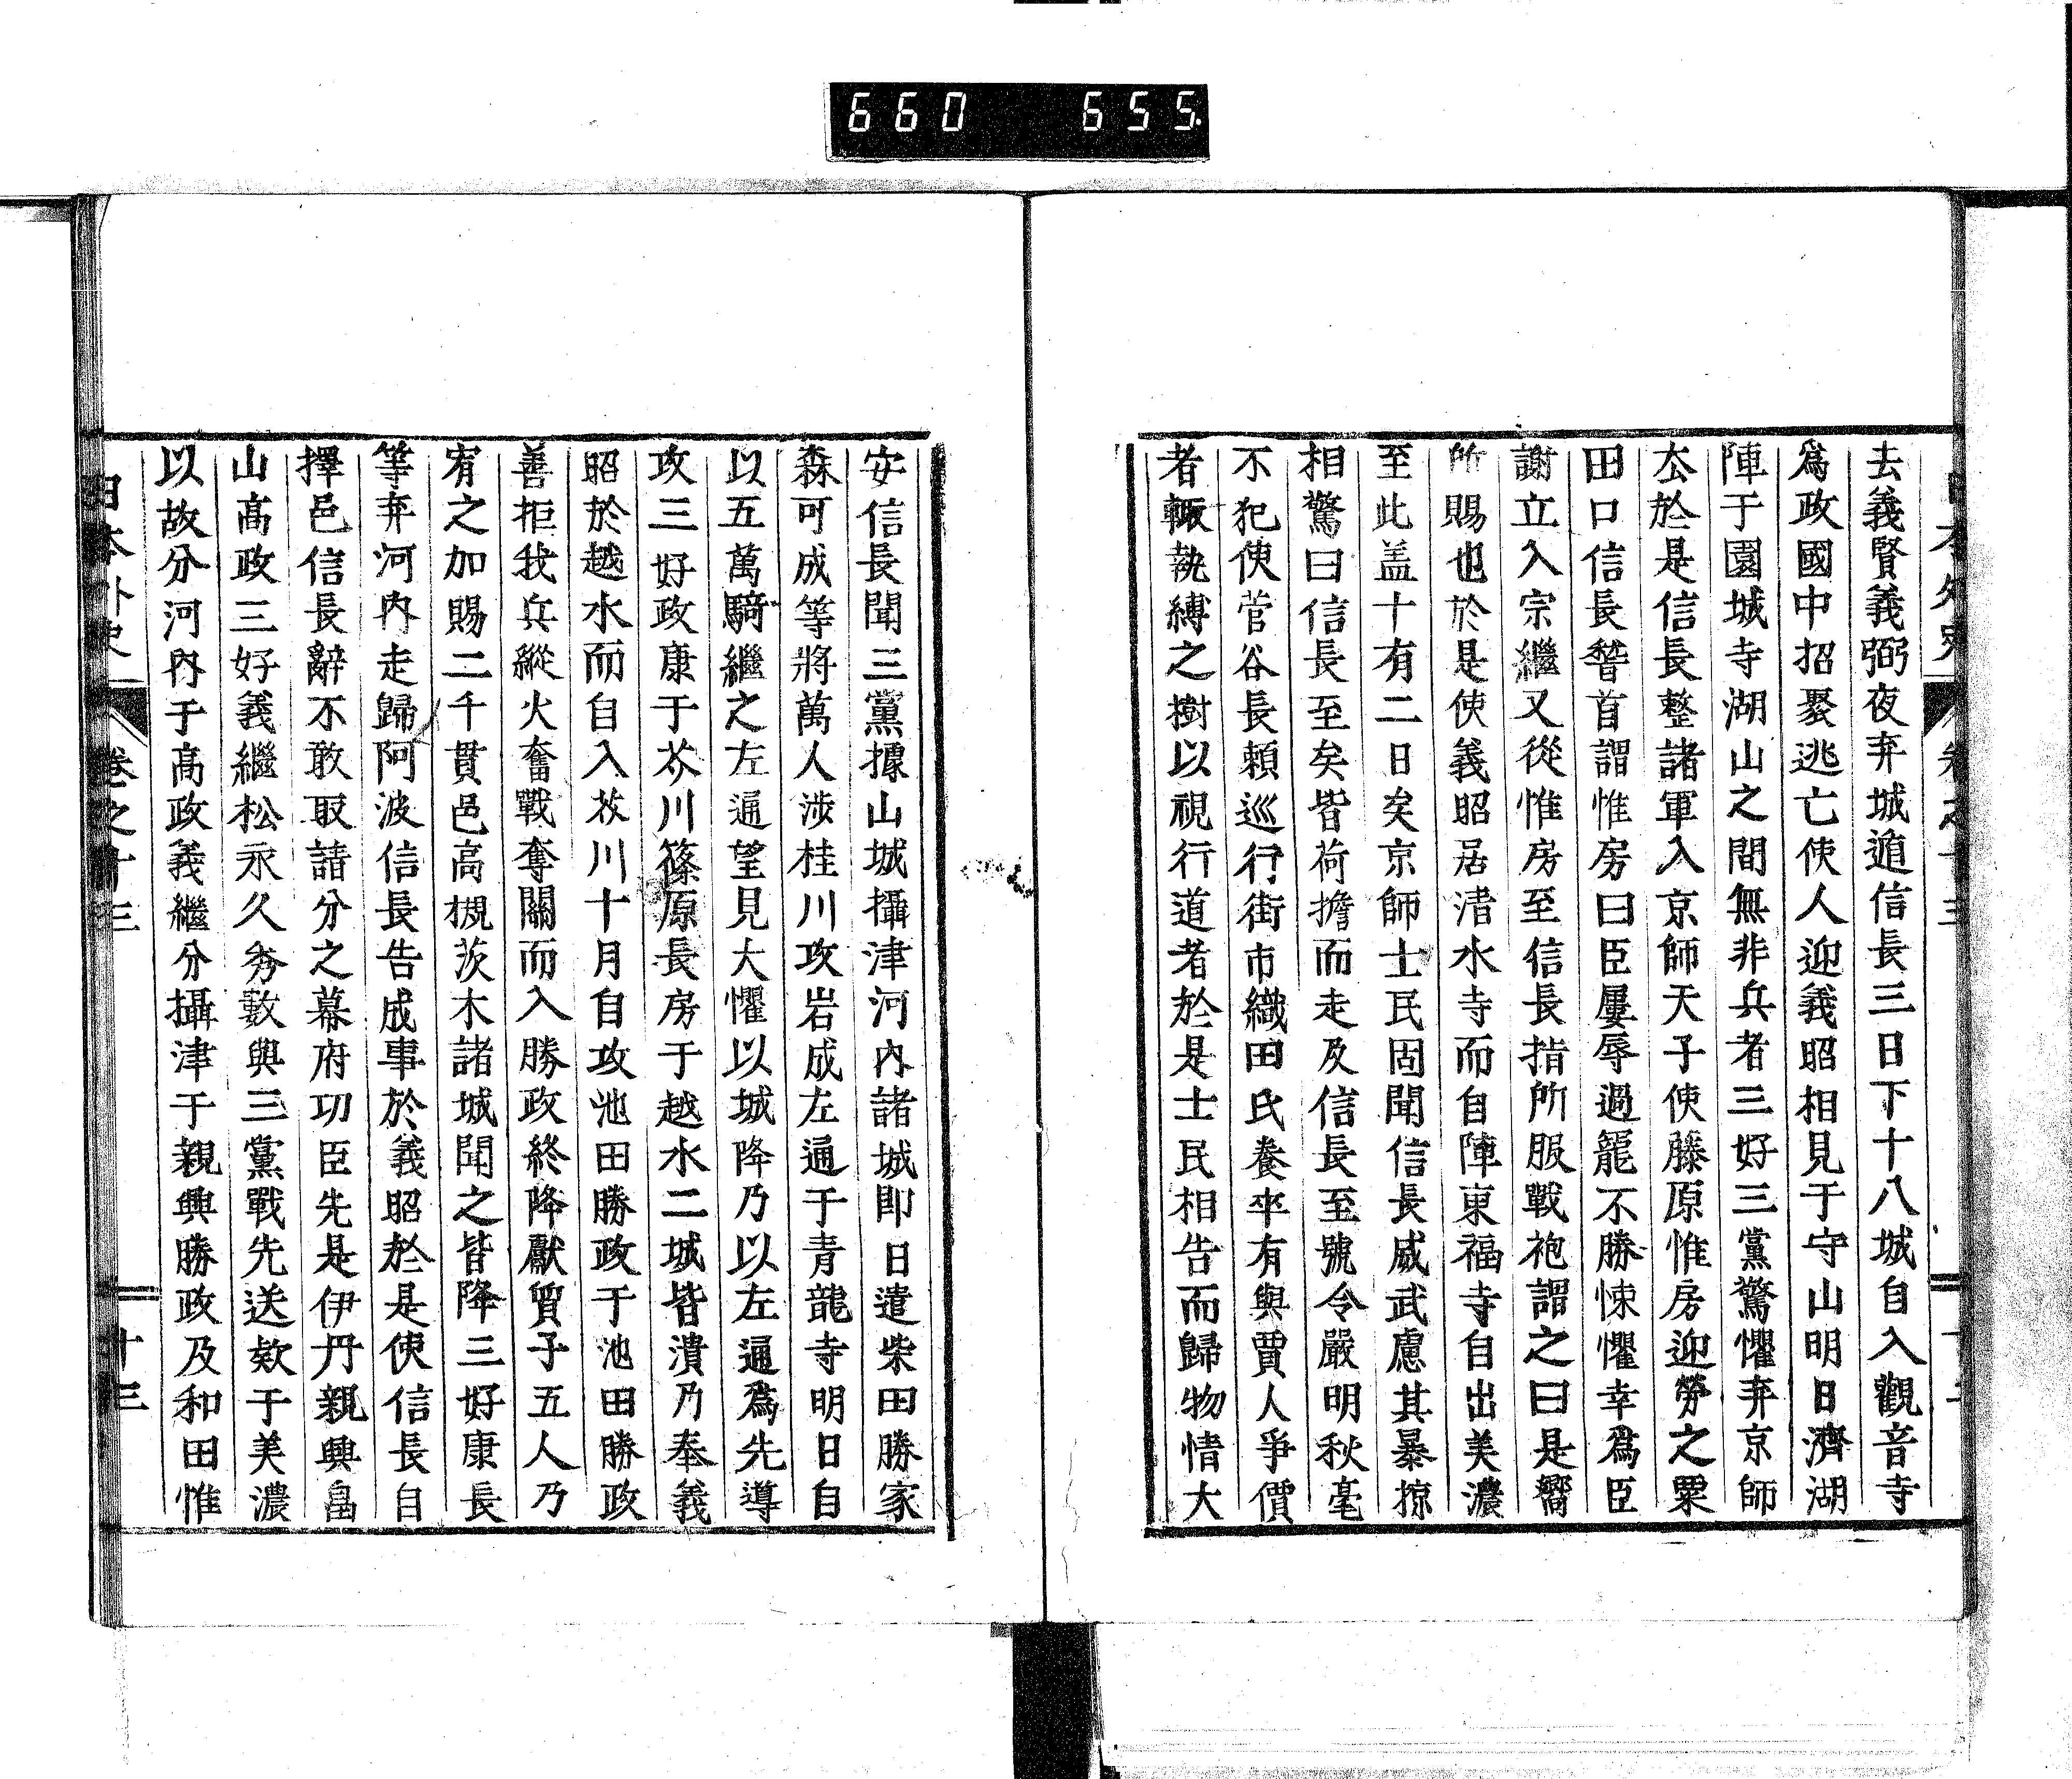 660 655
去義賢義弼夜弃城遁信長三日下十八城自入觀音寺
爲政國中招聚逃亡使人迎義昭相見于守山明日濟湖
陣于園城寺湖山之間無非兵者三好三黨驚懼弃京師
厺於是信長整諸軍入京師天子使藤原惟房迎勞之粟
田口信長稽首謂惟房曰臣屢辱過寵不勝悚懼幸爲臣
謝立入宗繼又從惟房至信長指所服戰袍謂之曰是嚮
所賜也於是使義昭居淸水寺而自陣東福寺自出美濃
至此盖十有二日矣京師士民固聞信長威武慮其暴掠
相驚曰信長至矣皆荷擔而走及信長至號令嚴明秋毫
不犯使菅谷長賴巡行街市織田氏養卒有與賈人爭價
者輙執縛之樹以視行道者於是士民相告而歸物情大
安信長聞三黨據山城攝津河內諸城即日遣柴田勝家
森可成等將萬人涉桂川攻岩成左通于靑龍寺明日自
以五萬騎繼之左通望見大懼以城降乃以左通爲先導
攻三好政康于芥川篠原長房于越水二城皆潰乃奉義
昭於越水而自入芥川十月自攻池田勝政于池田勝政
善拒我兵縱火奮戰奪關而入勝政終降獻質子五人乃
宥之加賜二千貫邑高槻茨木諸城聞之皆降三好康長
等弃河內走歸阿波信長告成事於義昭於是使信長自
擇邑信長辭不敢取請分之幕府功臣先是伊丹親興畠
山高政三好義繼松永久秀數與三黨戰先送欵于美濃
以故分河內于高政義繼分攝津于親興勝政及和田惟
日本外史 卷之十三 十三